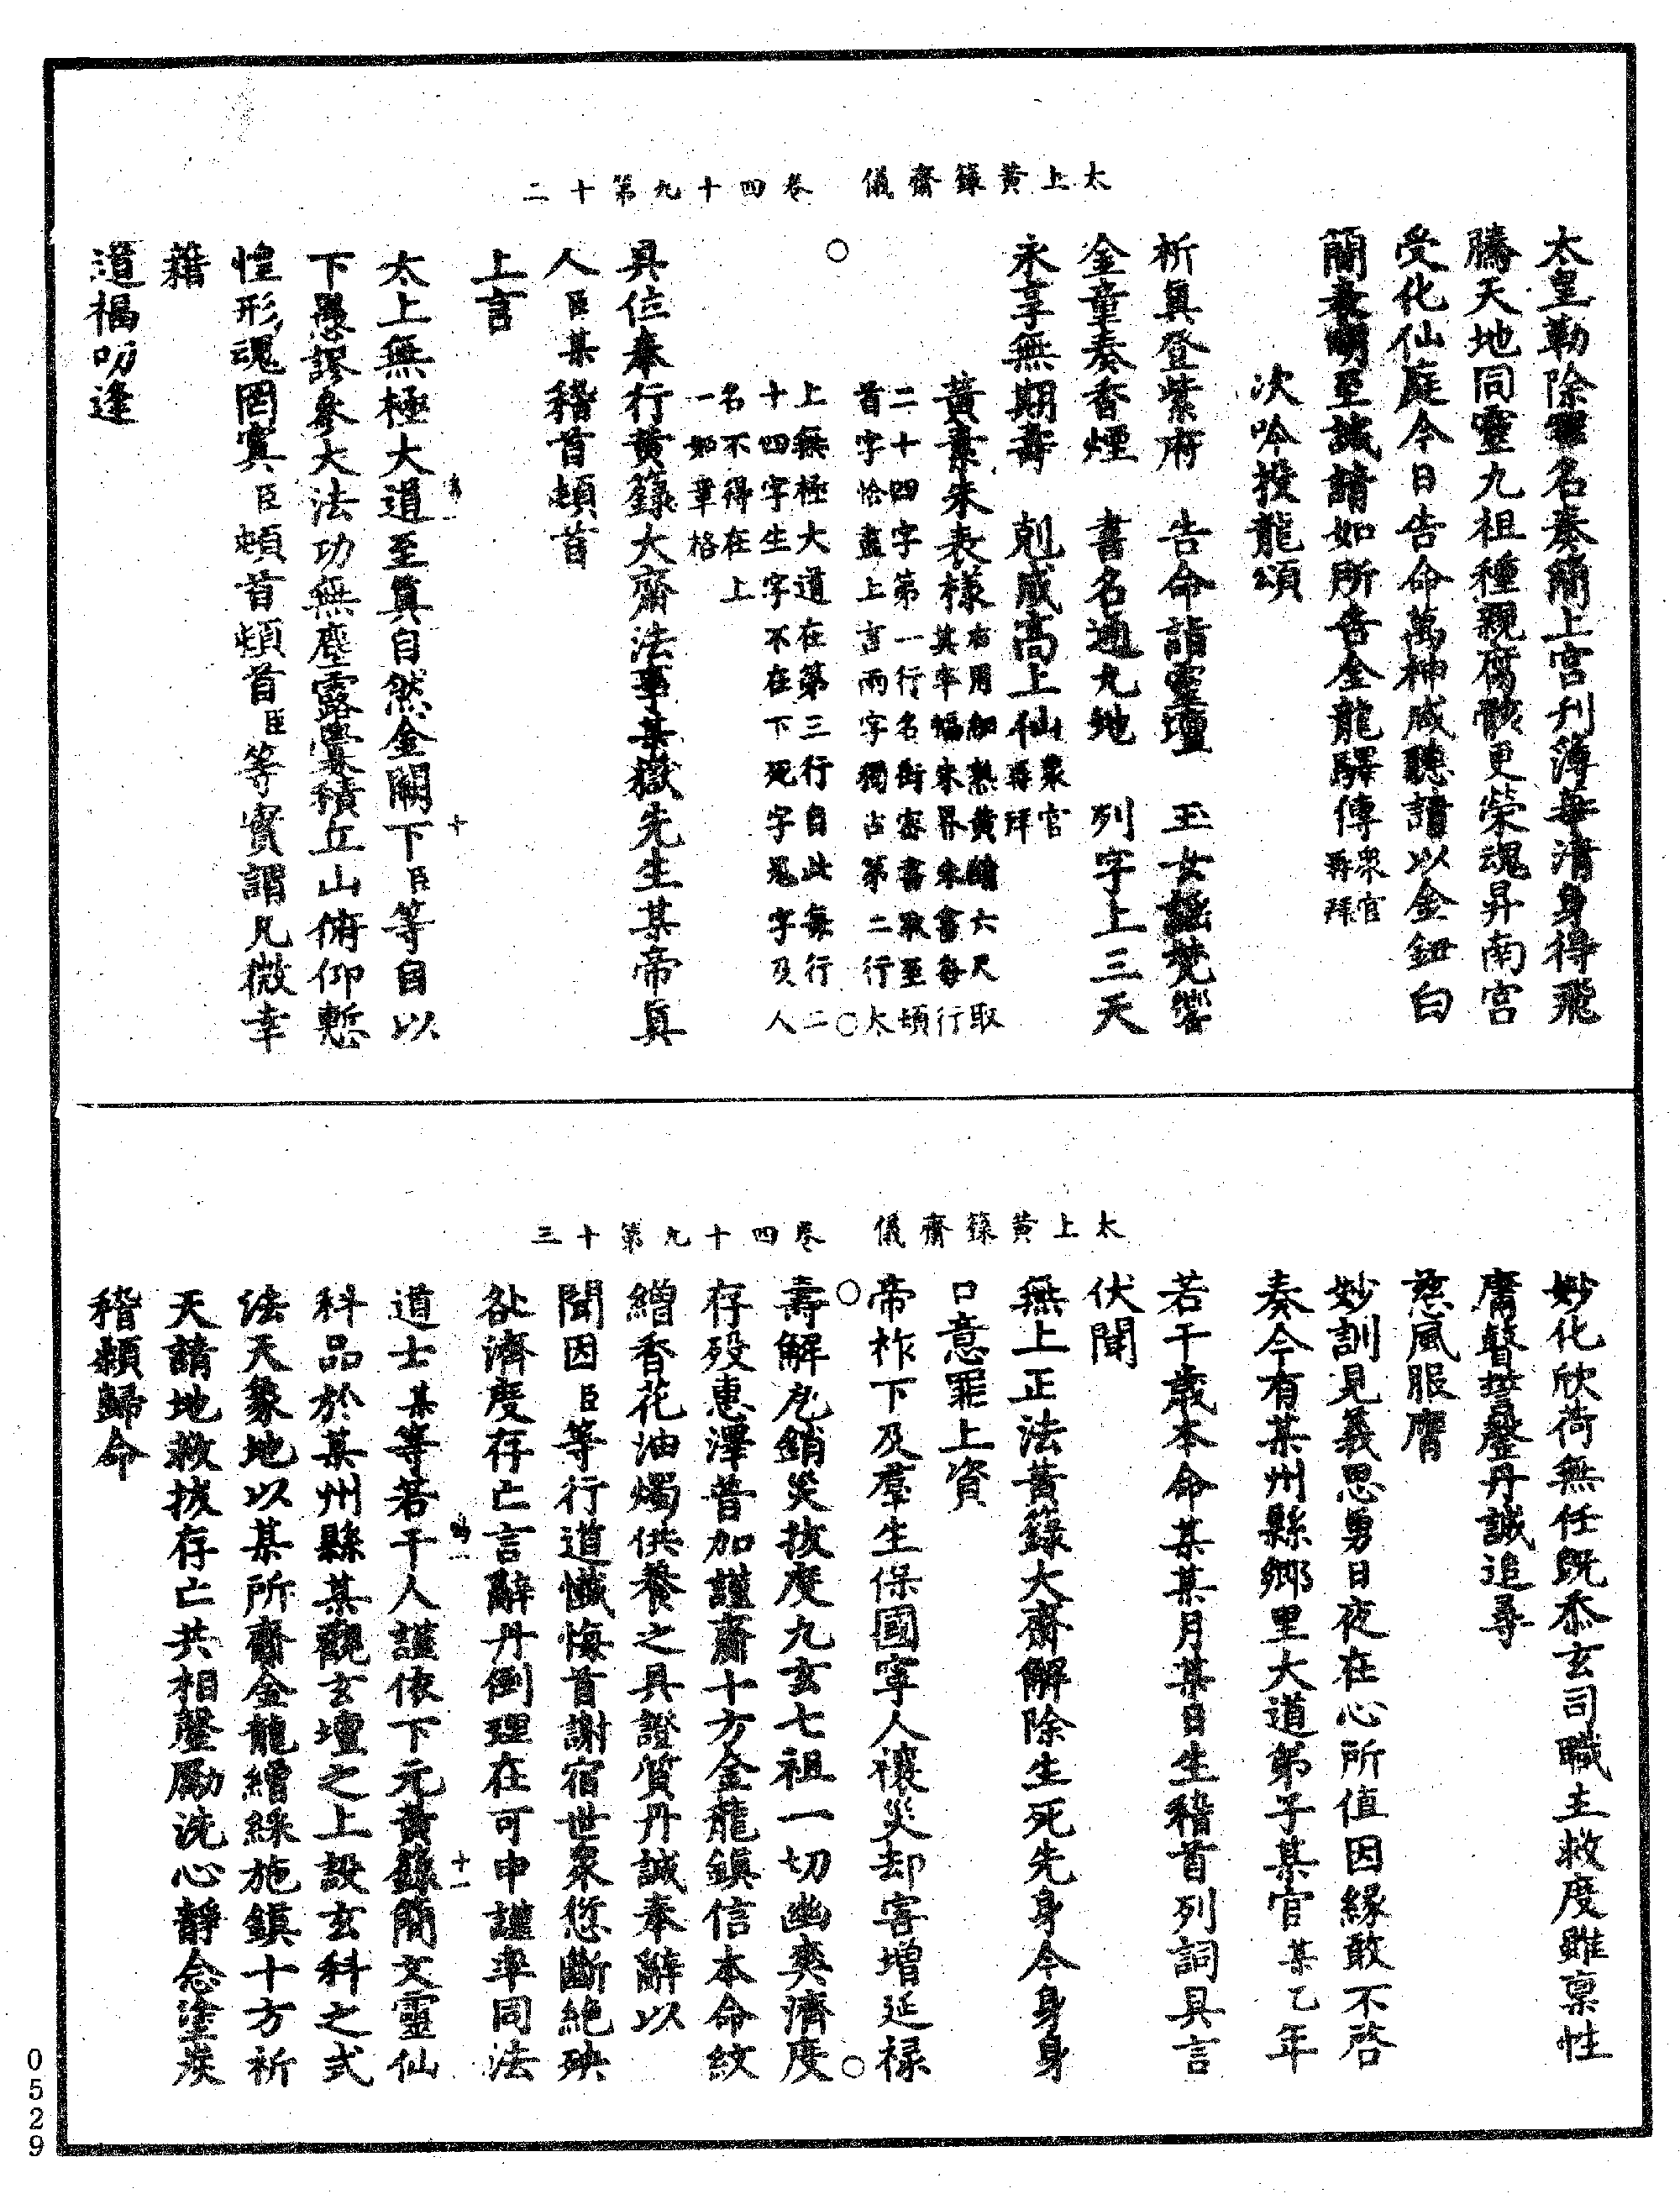 太上黃籙齋儀　卷四十九第十二
太皇勒除罪名奏簡上宮刊薄每清身得飛
騰天地同靈九祖種親腐骸更榮魂昇南宮
受化仙庭今日告命萬神咸聽請以金鈕白
簡表明至誠請如所告金龍驛傳衆官再拜
次吟投龍頌
析真登紫府　告命詣靈壇　玉女謠梵響
金童奏香煙　書名通九地　列字上三天
永享無期壽　剋成高上仙衆官再拜
黃素朱表樣右用細熟黃繒六尺取
其牢幅朱界朱書每行
二十四字第一行名銜密書取至頓
首字恰盡上言兩字獨占第二行太
上無極大道在第三行自此每行二
十四字生字不在下死字鬼字及人
名不得在上
一如章格
具位奉行黃籙大齋法事某嶽先生某帝真
人臣某稽首頓首
上言
太上無極大道至真自然金闕下臣等自以
下愚謬參大法功無塵露舋積丘山俯仰慙
惶形魂罔寘臣頓首頓首臣等實謂凡微幸
藉
道福叨逢
太上黃籙齋儀　卷四十九第十三
妙化欣荷無任既忝玄司職主救度雖稟性
庸瞽誓罄丹誠追尋
慈風服膺
妙訓見義思勇日夜在心所值因緣敢不啓
奏今有某州縣鄉里大道弟子某官某乙年
若干歲本命某某月某日生稽首列詞具言
伏聞
無上正法黃籙大齋解除生死先身今身身
口意罪上資
帝祚下及羣生保國寧人禳災却害增延祿
壽解厄銷災拔度九玄七祖一切幽爽濟度
存歿惠澤普加謹齎十方金龍鎮信本命紋
繒香花油燭供養之具證質丹誠奉辭以
聞因臣等行道懺悔首謝宿世衆愆斷絕殃
咎濟度存亡言辭丹倒理在可申謹率同法
道士某等若干人謹依下元黃籙簡文靈仙
科品於某州縣某觀玄壇之上設玄科之式
法天象地以某所齎金龍繒綵施鎮十方祈
天請地救拔存亡共相罄勵洗心靜念塗炭
稽顙歸命
0529